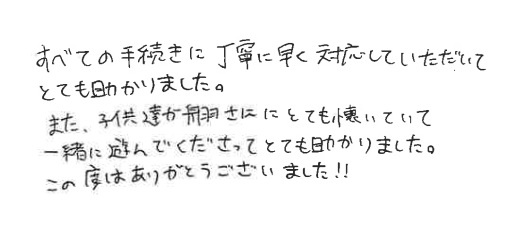 すべての手続きに丁寧に早く対応していただいて
とても助かりました。
また、子供達が さんに とても懐いていて
一緒に遊んでくださってとても助かりました。
この度はありがとうございました!!